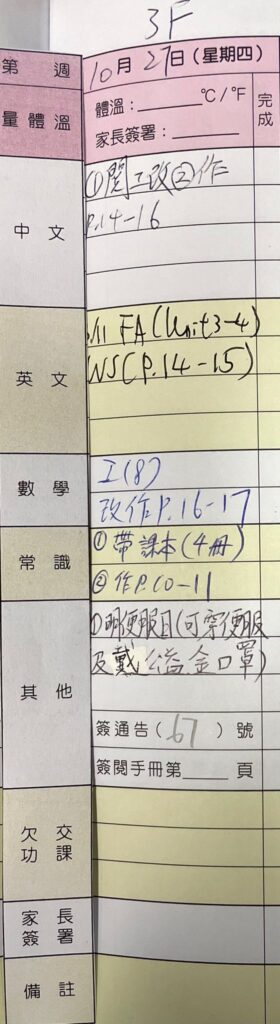 3F
第 週
10月27日(星期四)
量體溫
體溫：______℃/℉
家長簽署：______
完成
中文
①閱二改②作
P.14-16
英文
FA(Unit3-4)
WS(P.14-15)
數學
工(8)
改作P.16-17
常識
①帶課本(4冊)
②作P.10-11
其他
①明便服日(可穿便服
及戴公益金口罩)
簽通告(67)號
簽閱手冊第____頁
欠交功課
家長簽署
備註